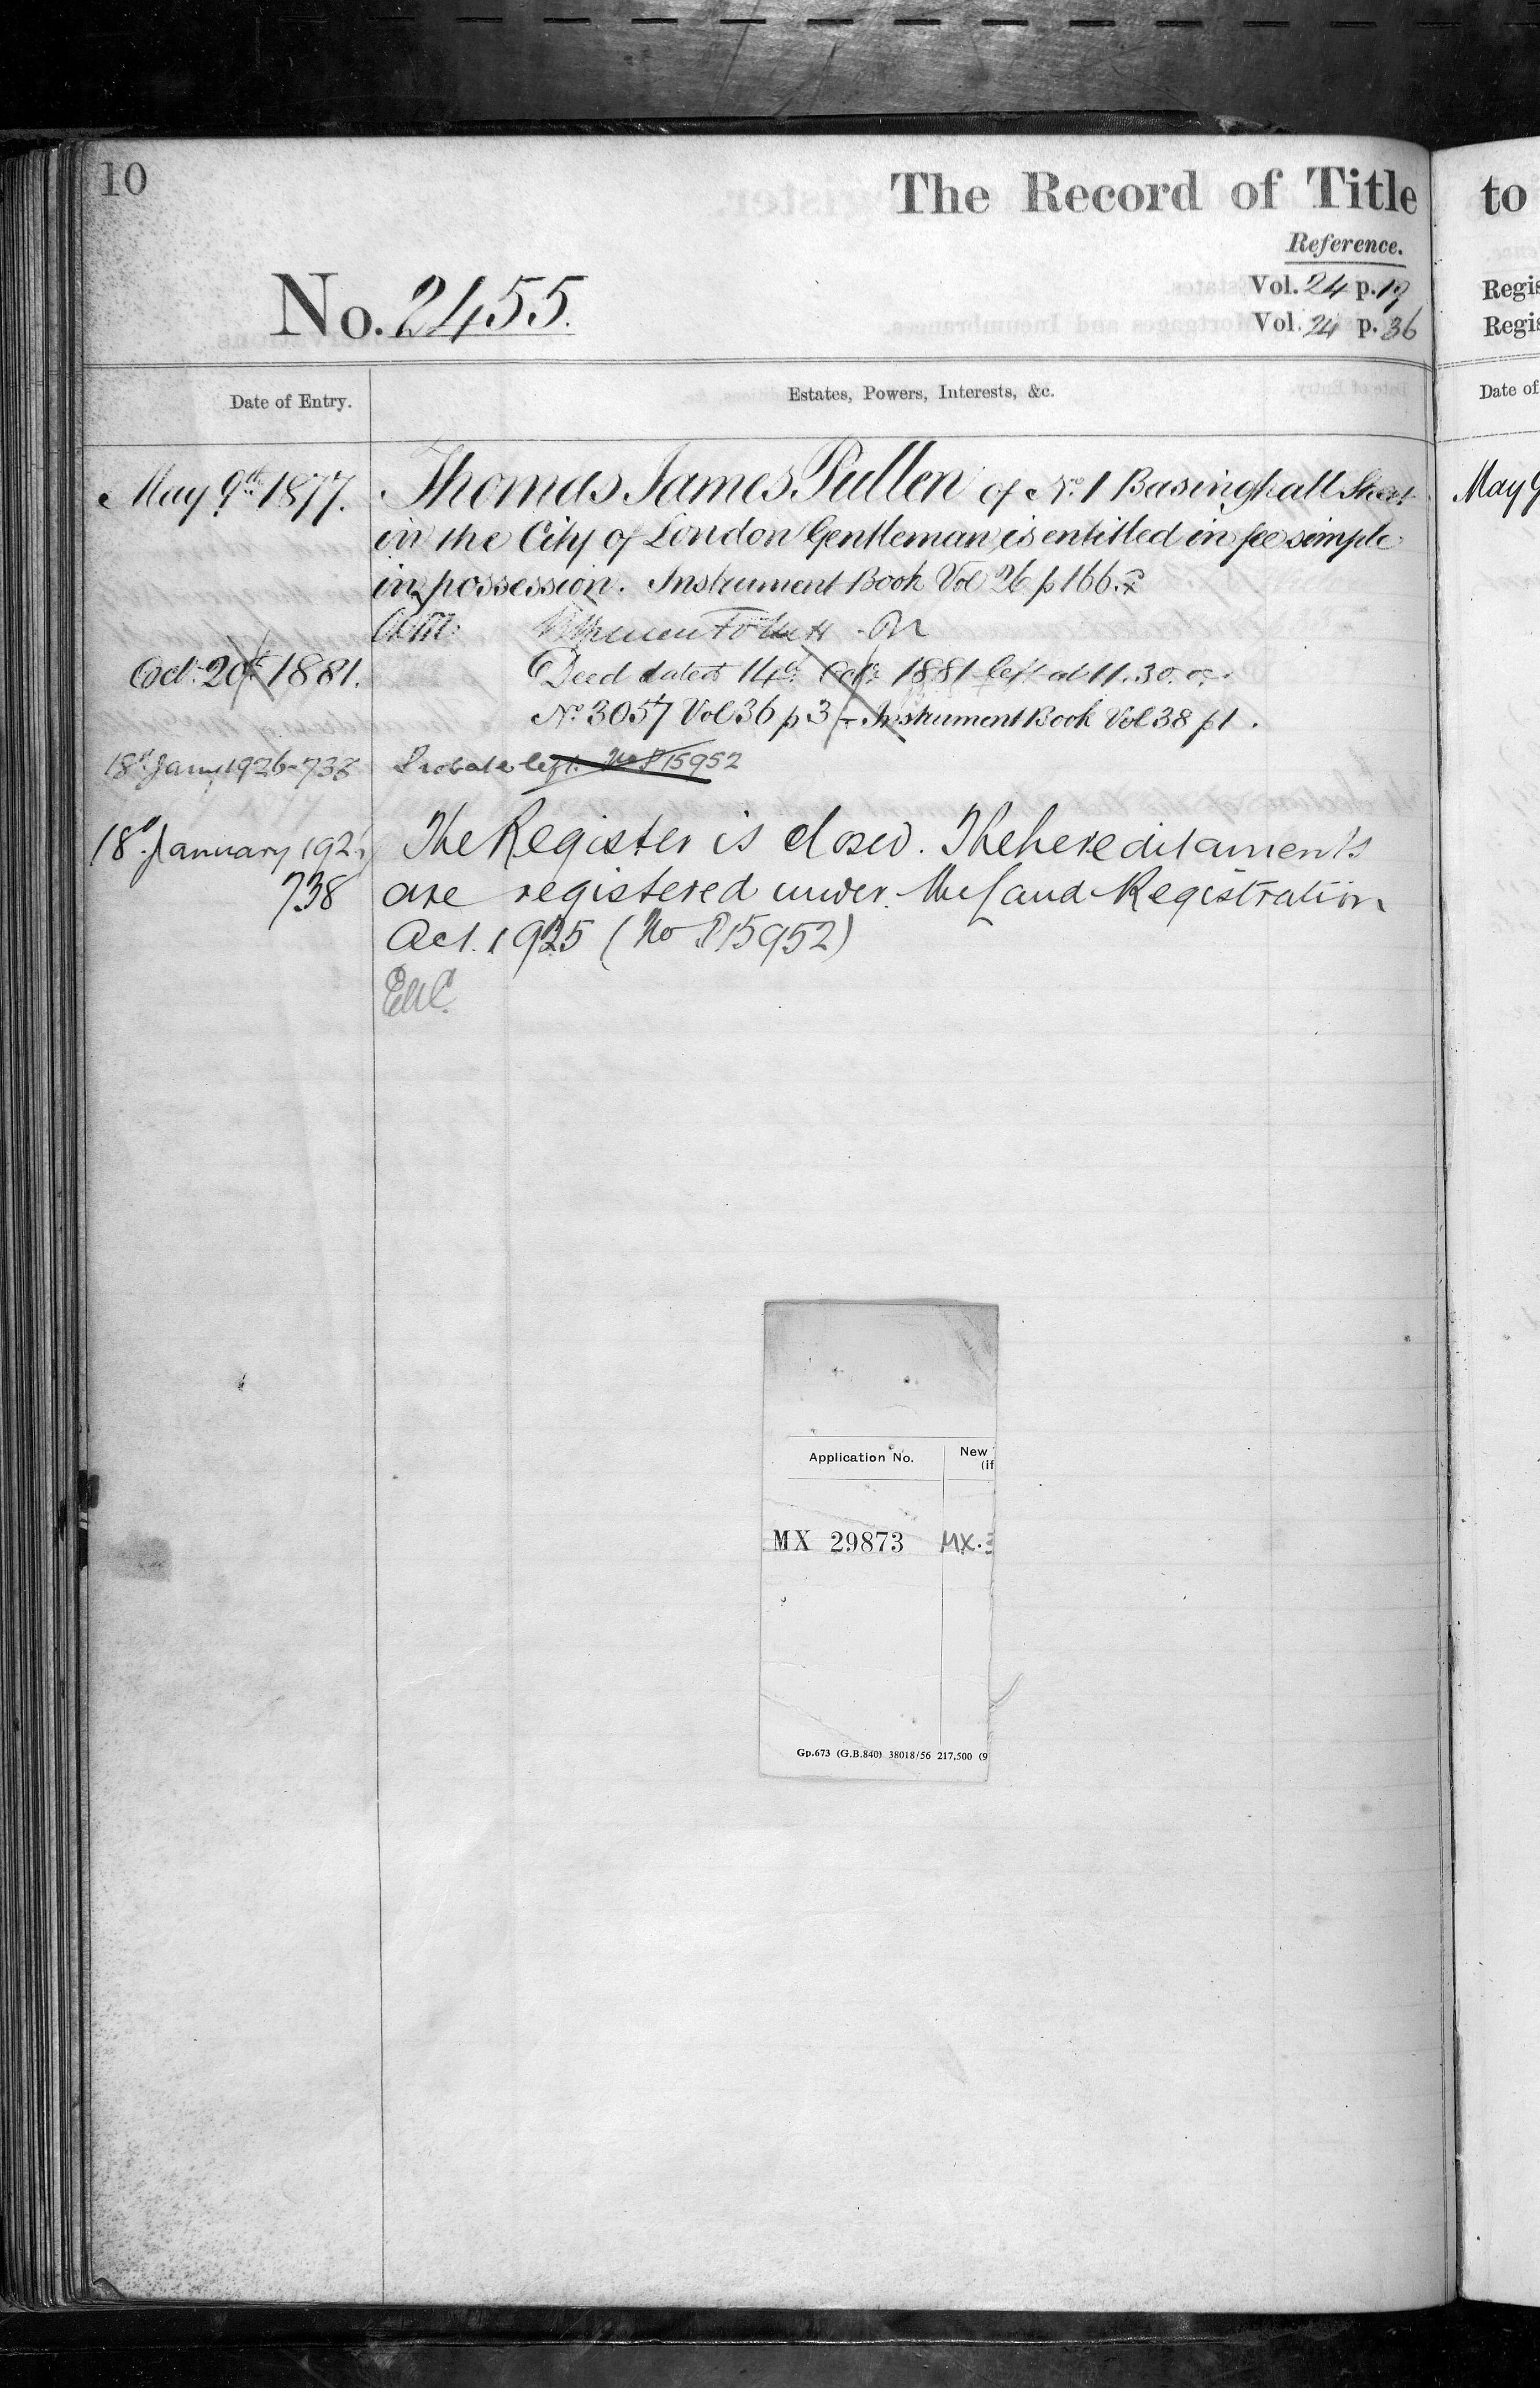 10
The Record of Title
to
Reference.
No. 2455.
Vol. 24 p. 19
Vol. 24 p. 36
Regis
Regis
Date of Entry.
Estates, Powers, Interests, &c.
Date of
May 9th 1877.
Thomas James Pullen of No. 1 Basinghall Street
May 9
in the City of London Gentleman is entitled in fee simple
in possession. Instrument Book Vol 26 p 166.
Oct: 20th 1881.
Deed dated 14th Octr. 1881 left at 11.30.
No. 3057 Vol 36 p 3 - Instrument Book Vol 38 p 1.
18th Jany 1926-738
Probate left. No P15952
18th January 192
The Register is closed. The hereditaments
738
are registered under the Land Registration
Act. 1925 (No P15952)
Application No.
New
(if
MX 29873
MX.3
Gp.673 (G.B.840) 38018/56 217,500 (9